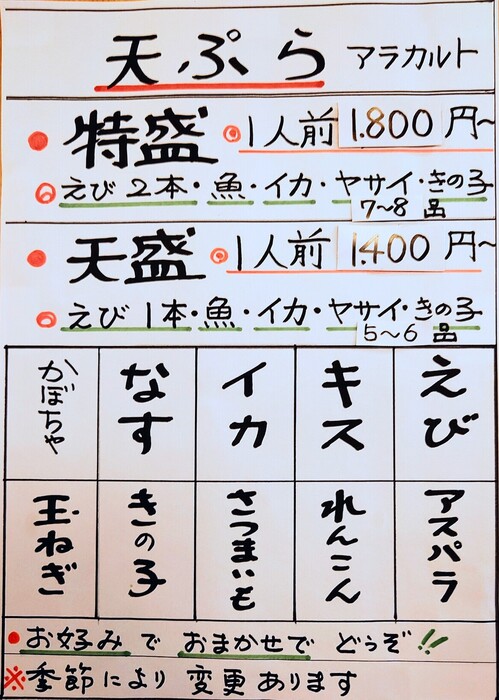 天ぷら アラカルト
特盛 1人前 1.800円~
えび2本・魚・イカ・ヤサイ・きの子
7~8品
天盛 1人前 1.400円~
えび1本・魚・イカ・ヤサイ・きの子
5~6品
えび
キス
イカ
なす
かぼちゃ
アスパラ
れんこん
さつまいも
きの子
玉ねぎ
お好みで おまかせで どうぞ!!
※季節により 変更あります